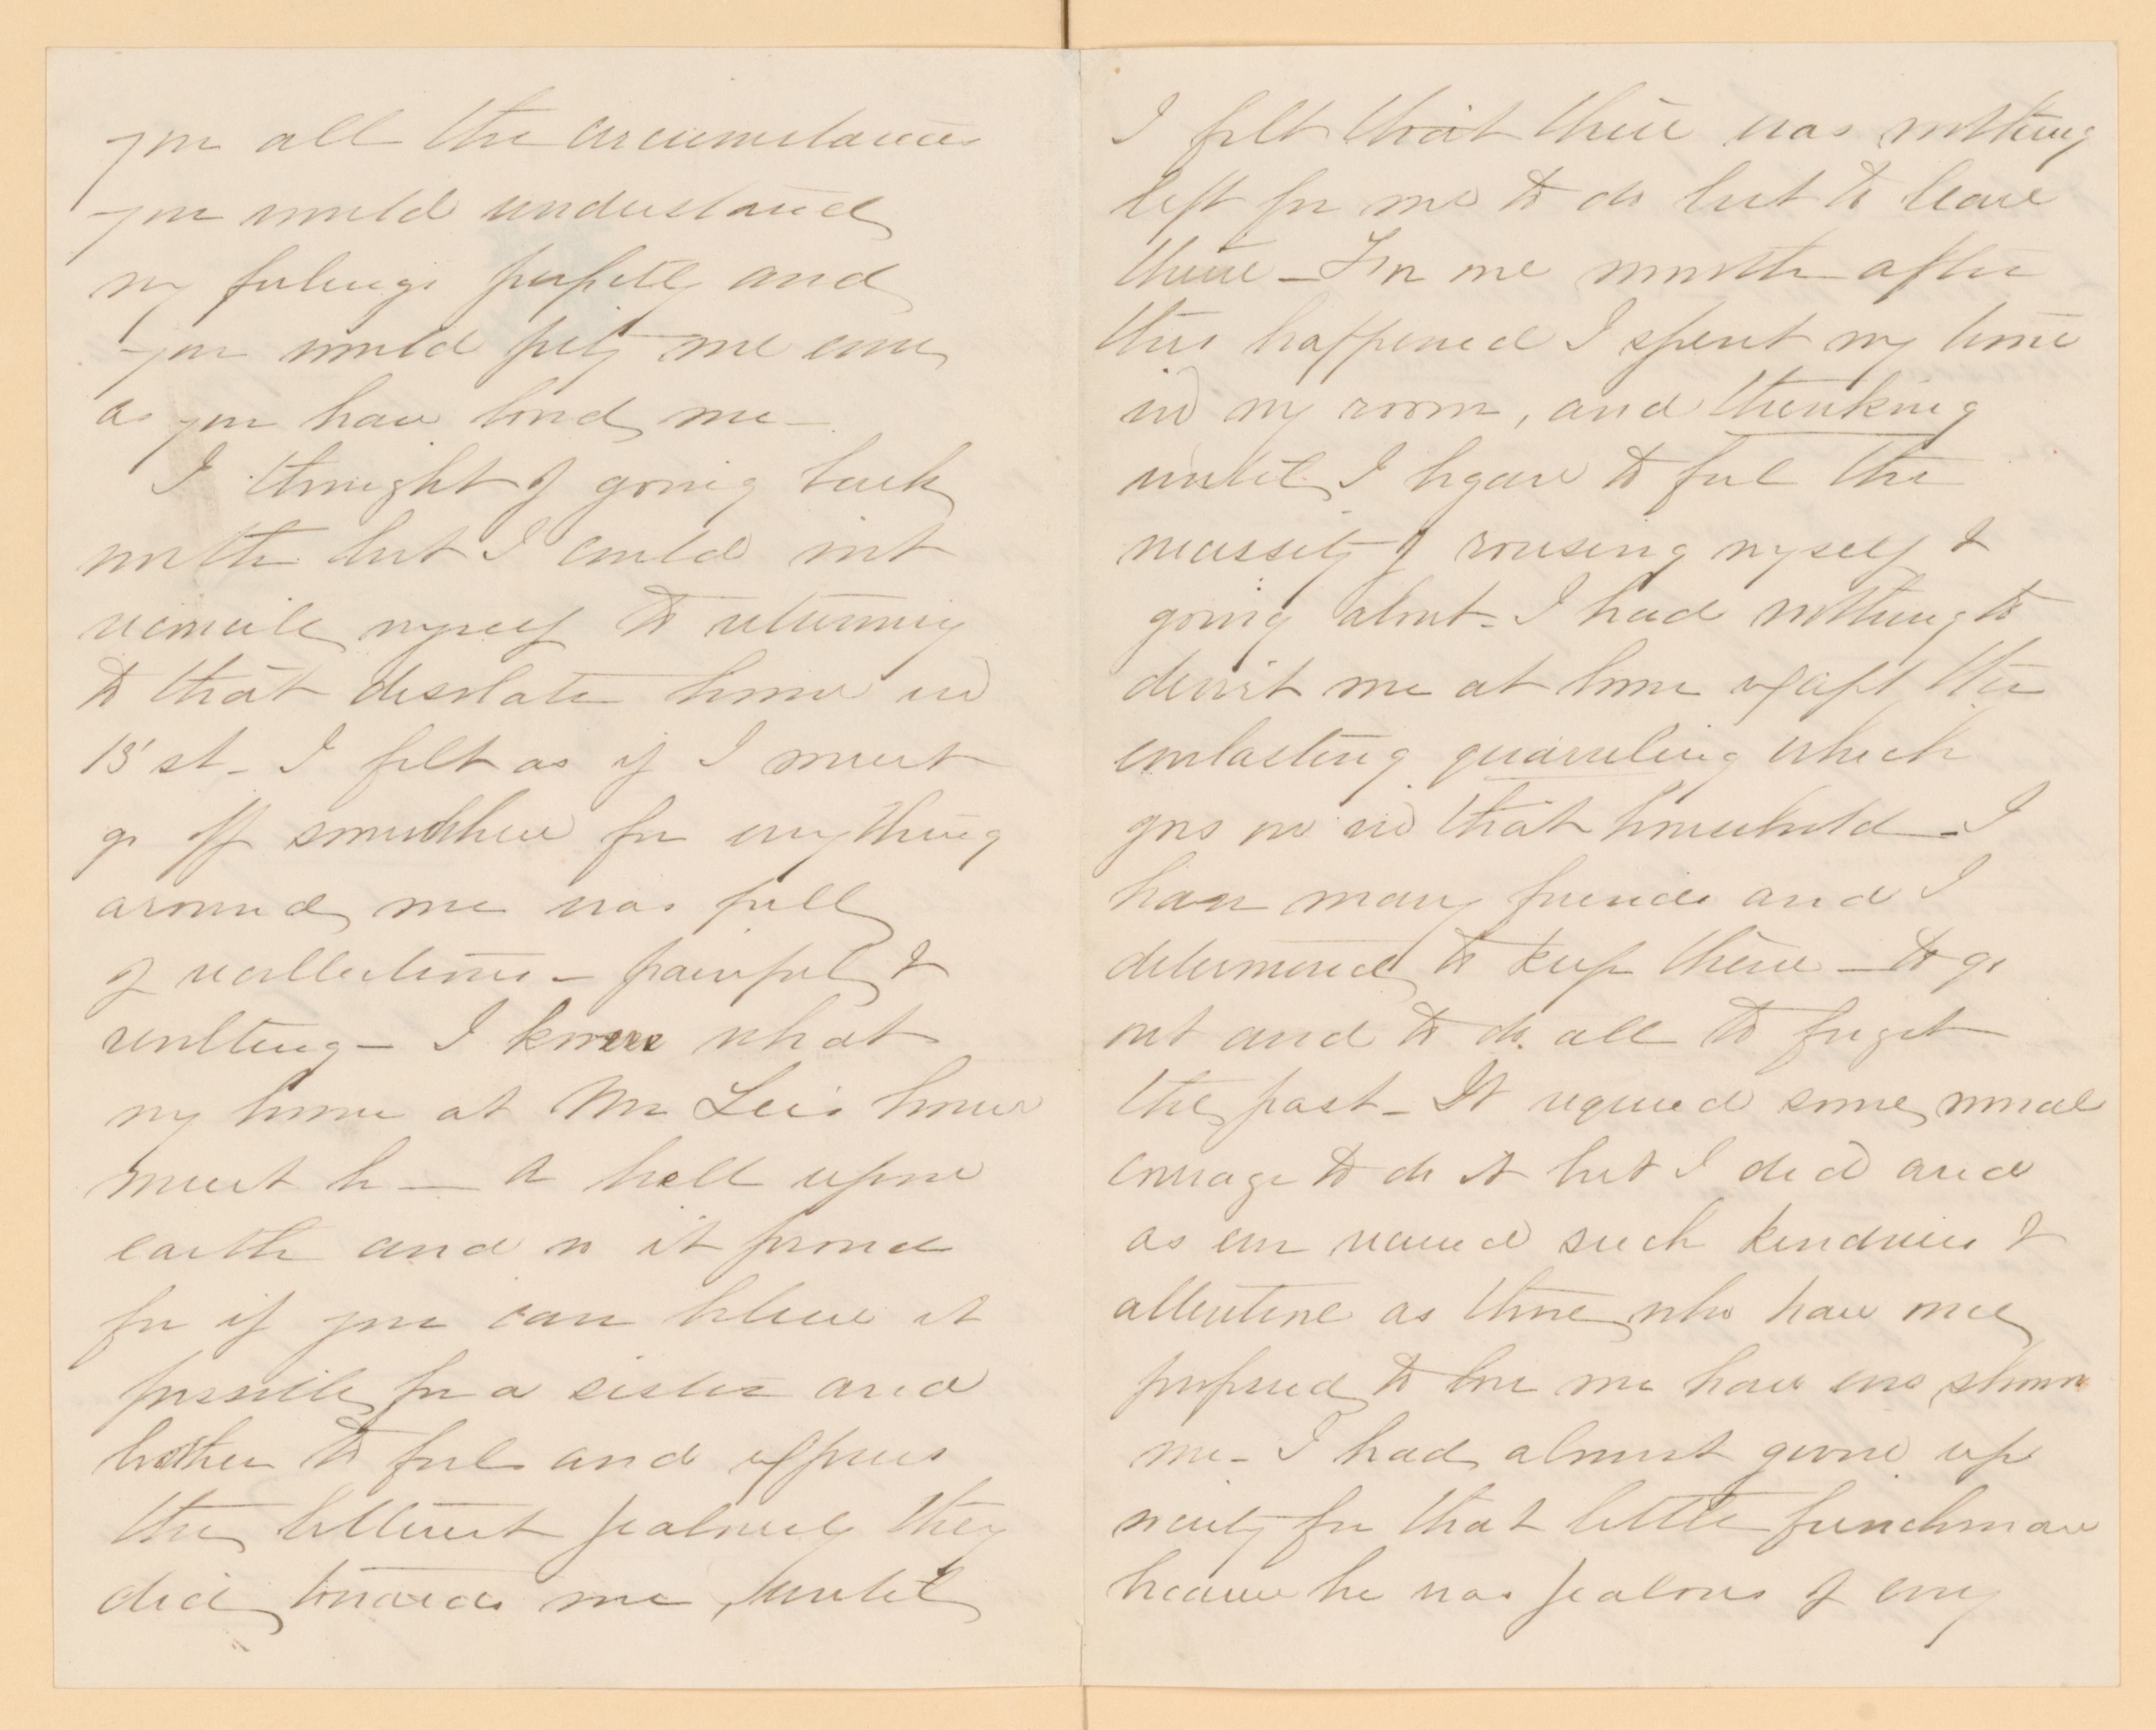 you all the circumstances
you would understand
my feelings perfectly and
you would pity me even
as you have loved me —
I thought of going back
north but I could not
reconcile myself to returning
to that desolate house in
15' st — I felt as if I must
go off somewhere for everything
around me was full
of recollections — painful &
revolting — I knew what
my home at Mr Lee's house
must be — a hell upon
earth and so it proved
for if you can believe it
possible for a sister and
brother to feel and express
the bitterest jealousy they
did towards me, until
I felt that there was nothing
left for me to do but to leave
there — For one month after
this happened I spent my time
in my room, and thinking
until I began to feel the
necessity of rousing myself &
going about — I had nothing to
divert me at home except the
everlasting quarreling which
goes on in that household — I
have many friends and I
determined to keep them — to go
out and to do all to forget
the past — It required some moral
courage to do it but I did and
as ever received such kindness &
attention as those who have
professed to love me have ever shown
me — I had almost given up
society for that little frenchman
because he was jealous of every